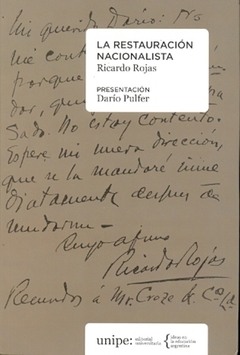 Mi querido Darío: No
me cont
porque
dor, que
sado. No estoy contento.
Espere mi nueva dirección,
que se la mandaré inme
diatamente después de
mudarme —
Suyo afmo
Ricardo Rojas
Recuerdos á Mr. Croze de
LA RESTAURACIÓN
NACIONALISTA
Ricardo Rojas
PRESENTACIÓN
Darío Pulfer
unipe:
editorial
universitaria
ideas en
la educación
argentina